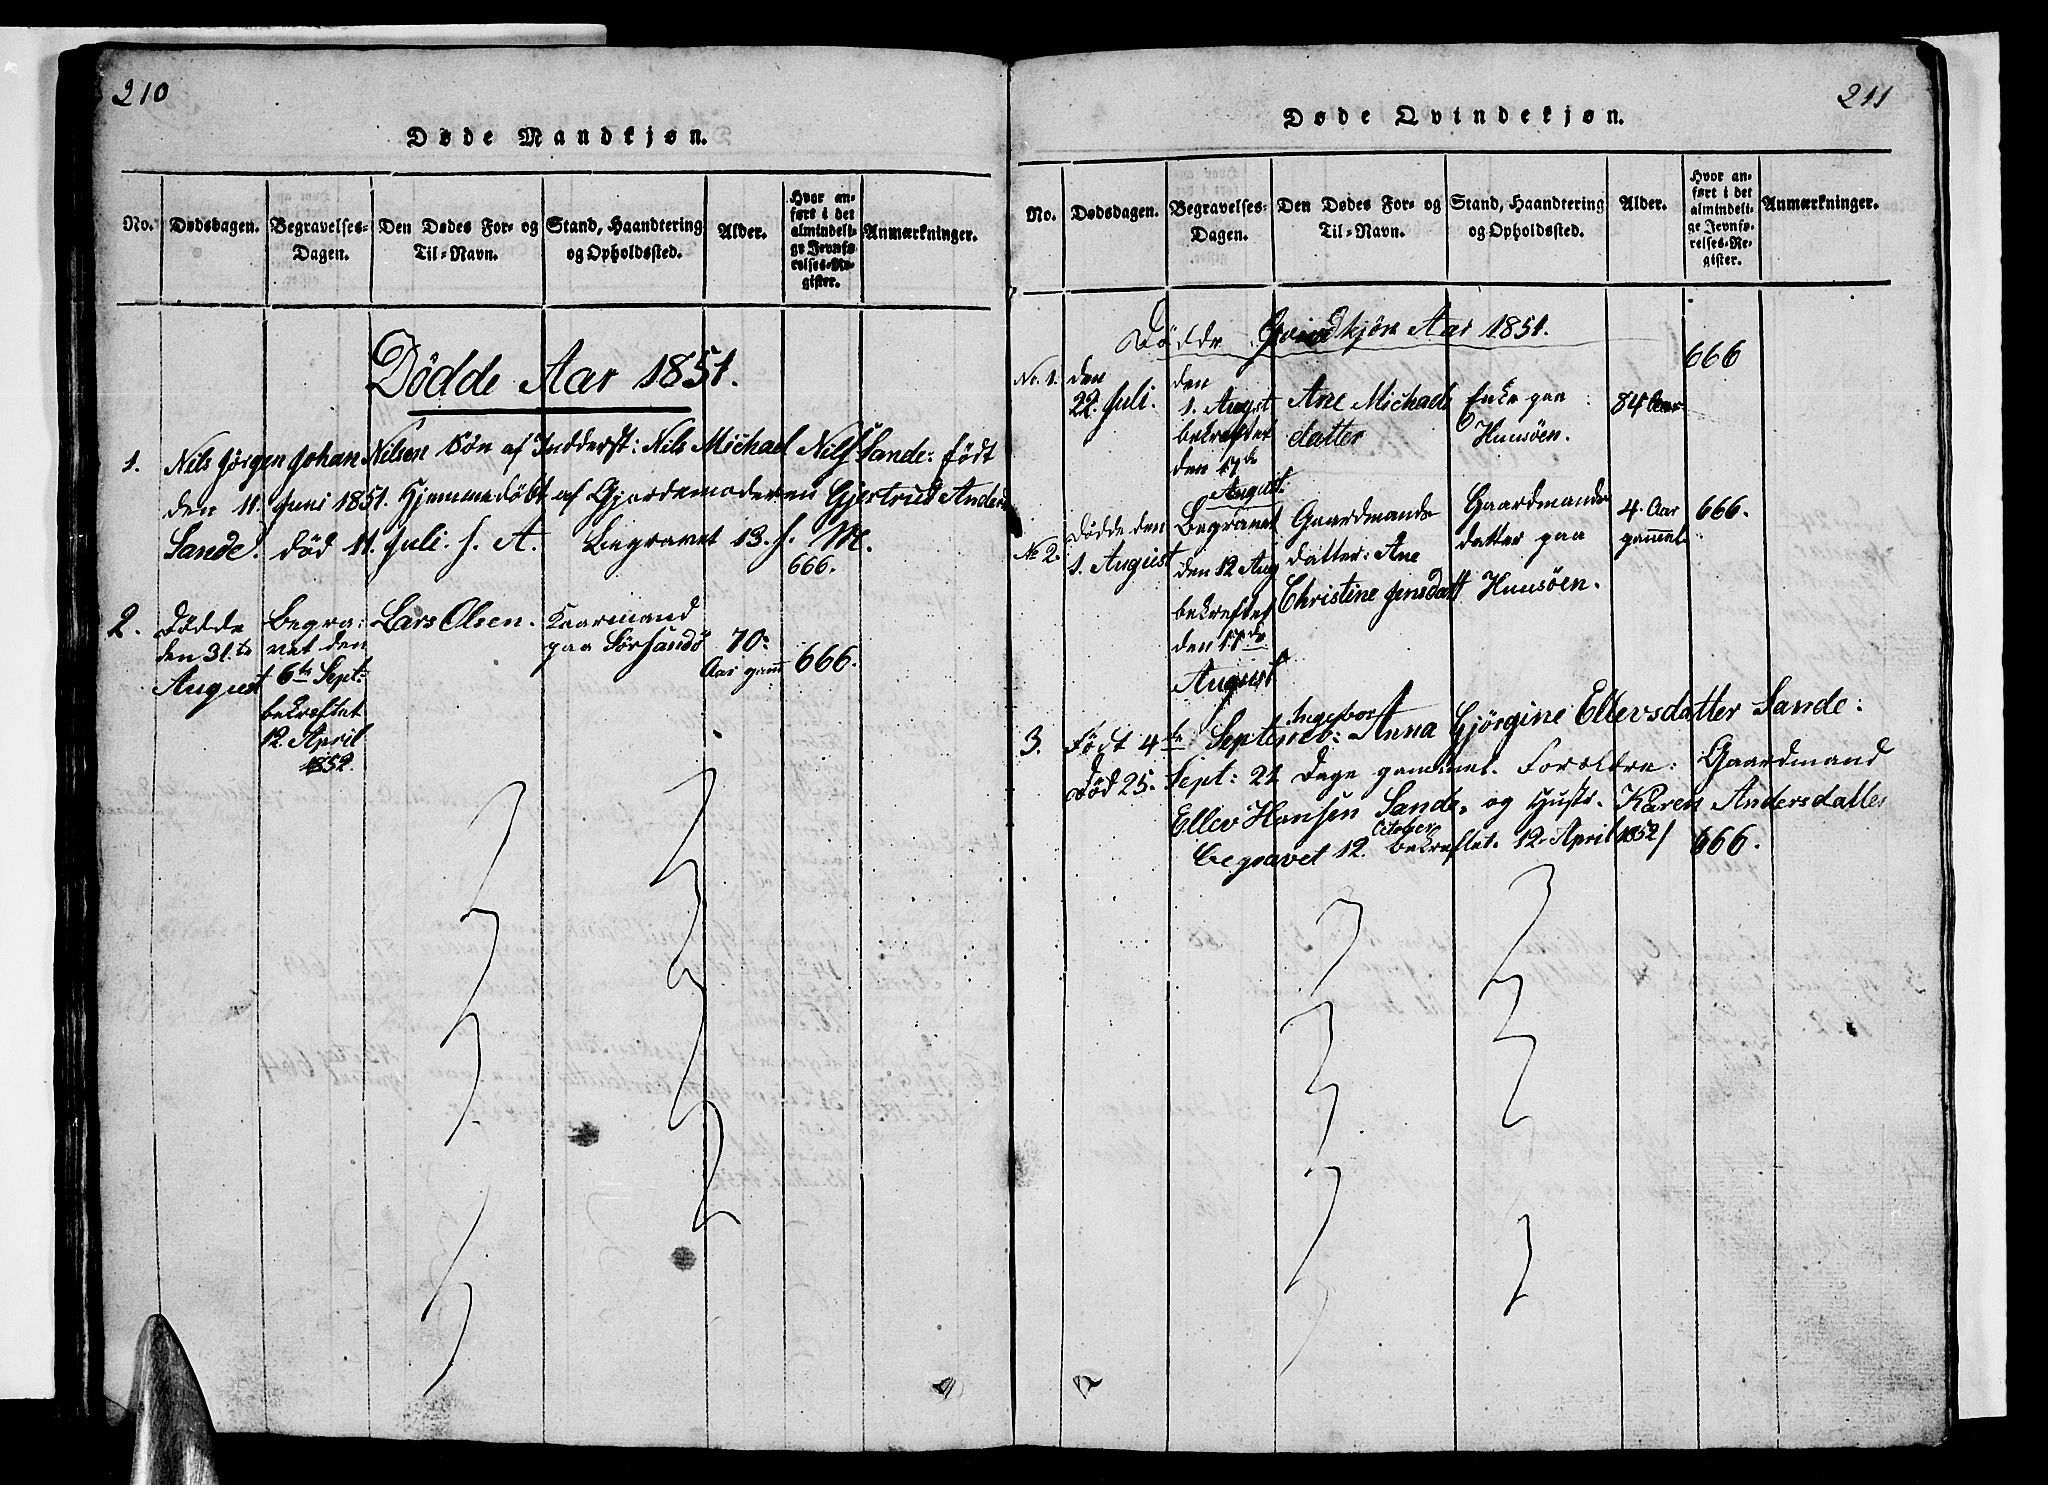 210
Døde Mandkjøn.
No.
Dødsdagen.
Begravelses-
Dagen.
Den Dødes For- og
Til-Navn.
Stand, Haandtering
og Opholdssted.
Alder.
Hvor an-
ført i det
almindeli-
ge Jevnfø-
relses-Re-
gister.
Anmærkninger.
Dödde Aar 1851.
1. Nils Jörgen Johan Nilsen Sön af Indderst: Nils Michael Nilss Sande: födt
den 11. Juni 1851. Hjemmedöbt af Gjordemoderen Gjertrud Anders
Sande. Död 11. Juli. s. A. Begravet 13. s. M.
666.
2. Dödde
den 31.te
August
Begra:
vet den
6te Sept:
bekræftet
12. April
1852.
Lars Olsen.
Kaarmand
paa Sörsandö
70:
Aar gaml
666.
211
Døde Qvindekjøn.
No.
Dødsdagen.
Begravelses-
Dagen.
Den Dødes For- og
Til-Navn.
Stand, Haandtering
og Opholdssted.
Alder.
Hvor an-
ført i det
almindeli-
ge Jevnfø-
relses-Re-
gister.
Anmærkninger.
Dödde Qvindkjön Aar 1851.
No. 1.
den
22. Juli.
den
1. August
bekræftet
den 17de
August.
Ane Michaels
datter
Enke paa
Huusöen.
84 Aar
666
No 2.
Dödde den
1. August
Begravet
den 12 Aug
bekreftet
den 17de
August
Gaardmands
datter: Ane
Christine Jensdatt
Gaardmands
datter paa
Huusöen.
4. Aar
gammel
666.
3. Födt 4te Septemb: Ingeborg Anna Gjörgine Ellevsdatter Sande:
Död 25. Sept: 21 Dage gammel. Forældre: Gaardmand
Ellev Hansen Sande. og Hustr. Karen Andersdatter
begravet 12. October bekreftet. 12. April 1852/ 666.